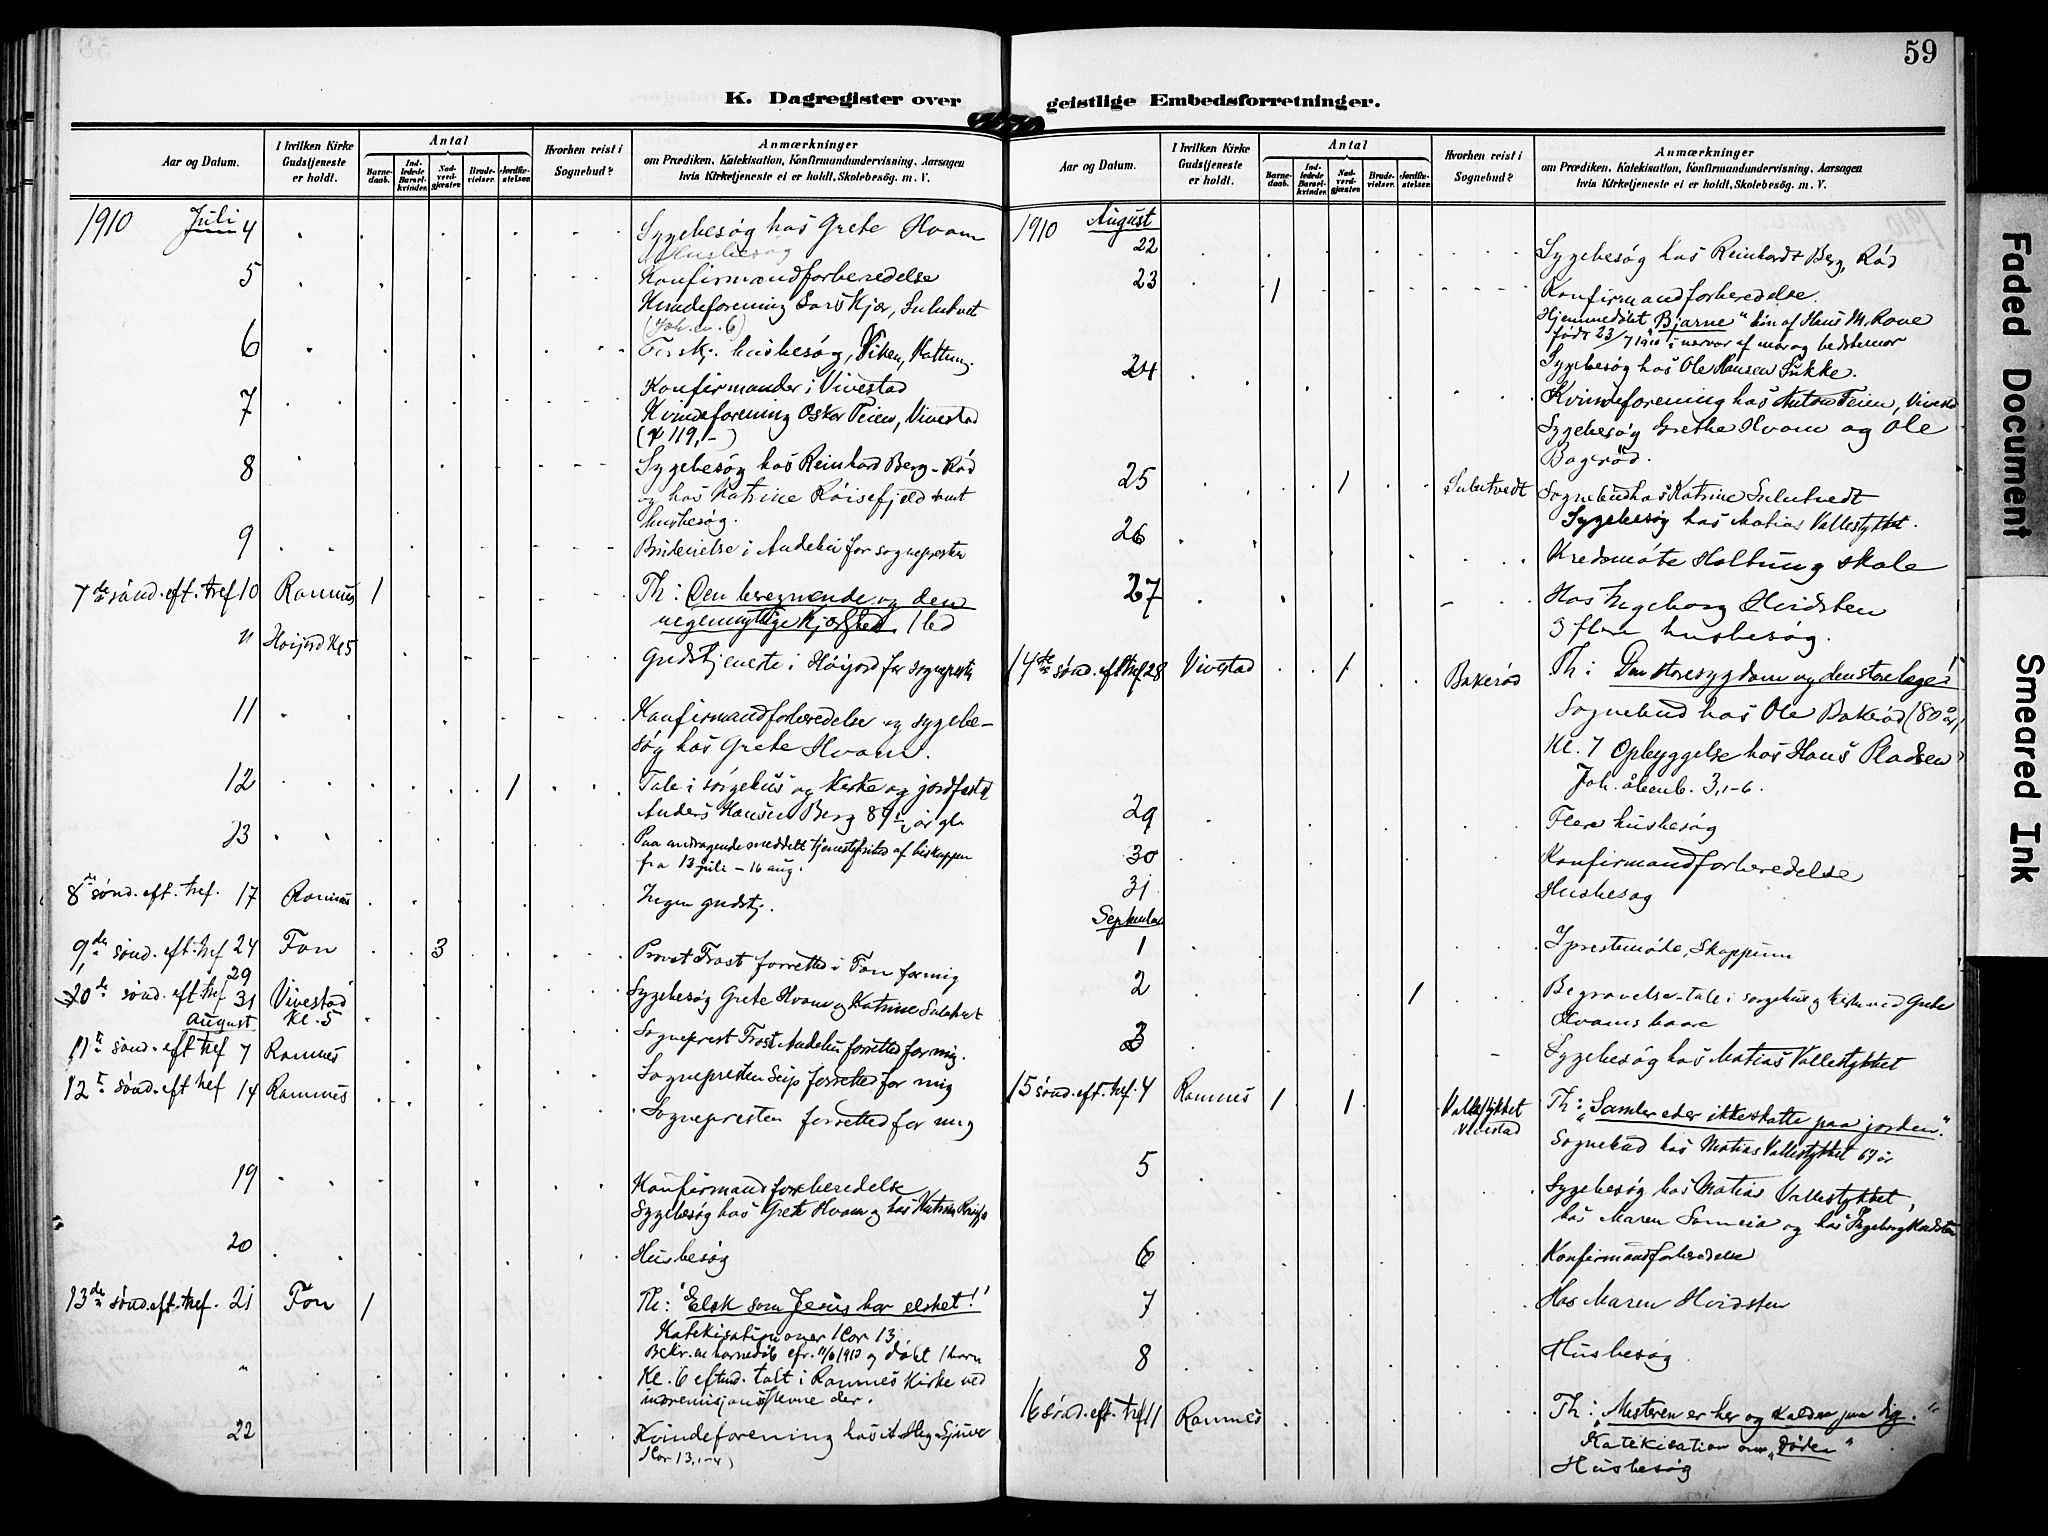 59
K. Dagregister over geistlige Embedsforretninger.
Aar og Datum.
I hvilken Kirke Gudstjeneste er holdt.
Antal
Barnedaab.
Indledede Barselkvinder.
Nadverdgjæster.
Brudevielser.
Jordfæstelser.
Hvorhen reist i Sognebud?
Anmærkninger
om Prædiken, Katekisation, Konfirmandundervisning, Aarsagen
hvis Kirketjeneste ei er holdt, Skolebesøg. m. V.
1910 Juli 4 Sygebesøg hos Grete Hvam
Husbesøg
5 Konfirmandforberedelse
Kvindeforening Lars Kjær, Sulutvet
(Joh. ev. 6)
6 Forskj. husbesøg, Viken, Kattum.
Konfirmander i Vivestad
7 Kvindeforening Oskar Teien, Vivestad
(119,-)
8 Sygebesøg hos Reinhard Berg-Rød
og hos Katrine Røisefjeld samt
husbesøg.
9 Brudevielse i Andebu for sognepresten
7de sønd. eft. tref 10 Ramnes 1 Th: Den beregnende og den
uegennyttige Kjærlighed. 1 bd
" Høijord Kl 5 Gudstjeneste i Høijord for sognepresten
11 Konfirmandforberedelse og sygebe-
søg hos Grete Hvam.
12 1 Tale i sørgehus og Kirke og jordfæstet
Anders Hansen Berg 89 år gl.
23 Paa andragende meddelt tjenestefrihed af biskoppen
fra 13 juli - 16 aug.
8de sønd. eft. tref. 17 Ramnes Ingen gudstj.
9de sønd. eft. tref 24 Fon 3 Provst Frost forretted i Fon for mig
29 Sygebesøg Grete Hvam og Katrine Sulutvet
10de sønd. eft tref 31 Vivestad Kl. 5 Sogneprest Frost Andebu forretted for mig.
August
11te sønd. eft tref 7 Ramnes Sognepresten Seip forretted for mig
12te sønd. eft tref 14 Ramnes Sognepresten forrettedfor mig
19 Konfirmandforberedelse
Sygebesøg hos Grete Hvam og hos Katrine Røisefj
20 Husbesøg
13de sønd. eft. tref. 21 Fon 1 Th: "Elsk som Jesus har elsket!"
Katekisation over 1 Cor 13.
Bekr. en barnedåb efr. 11/6 1910 og døbt 1 barn
" Kl. 6 eftmd. talt i Ramnes Kirke ved
indremisjonsstevne der.
22 Kvindeforening hos A. Sjuve
1 Cor 13,1-4)
Aar og Datum.
I hvilken Kirke Gudstjeneste er holdt.
Antal
Barnedaab.
Indledede Barselkvinder.
Nadverdgjæster.
Brudevielser.
Jordfæstelser.
Hvorhen reist i Sognebud?
Anmærkninger
om Prædiken, Katekisation, Konfirmandundervisning, Aarsagen
hvis Kirketjeneste ei er holdt, Skolebesøg. m. V.
1910 August
22 Sygebesøg hos Reinhardt Berg, Rød
23 1 Konfirmandforberedelse.
Hjemmedøbt "Bjarne" søn af Hans M. Rove
født 23/7 1910 i nærvær af mor og bedstemor
24 Sygebesøg hos Ole Hansen Sukke.
Kvindeforening hos Anton Teien, Vivestad
Sygebesøg Grethe Hvam og Ole
Bagerød.
25 1 Sulutvedt Sognebud hos Katrine Sulutvedt
Sygebesøg hos Matias Vallestykket.
26 Kredsmøte Haltung skole
27 Hos Ingeborg Hvidsten
3 flere husbesøg.
14de sønd. eft tref 28 Vivestad 1 Bakerød Th: Den store sygdom og den store læge!
Sognebud hos Ole Bakerød (80 år)
Kl. 7 Opbyggelse hos Hans Pladsen
Joh. åbenb. 3,1-6.
29 Flere husbesøg
30 Konfirmandforberedelse
31 Husbesøg
September
1 I prestemøde, Skoppum
2 1 Begravelse - tale i sørgehus og Kirke ved Grete
Hvams baare
3 Sygebesøg hos Matias Vallestykket
15 sønd. eft. tref. 4 Ramnes 1 1 Vallestykket Vivestad Th: "Samler eder ikke skatte paa jorden."
Sognebud hos Matias Vallestykket 67 år
5 Sygebesøg hos Matias Vallestykket,
hos Maren og hos Ingeborg Hvidsten
6 Konfirmandforberedelse
7 Hos Maren Hvidsten
8 Husbesøg
16 sønd. eft. tref 11 Ramnes Th: "Mesteren er her og kalder paa dig."
Katekisation om "døden"
Husbesøg
Faded Document
Smeared Ink